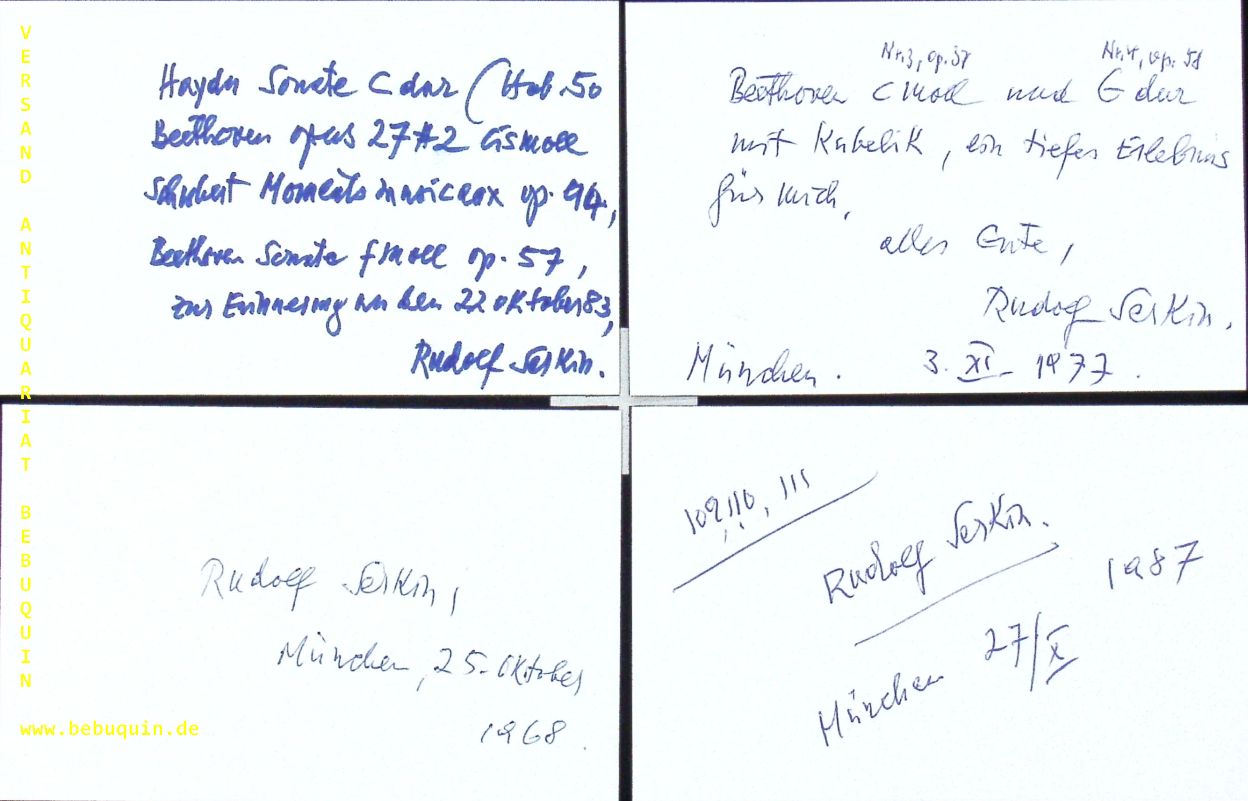 VERSAND ANTIQUARIAT BEBUQUIN
www.bebuquin.de
Haydn Sonate C dur (Hob. 50
Beethoven opus 27#2 Cismoll
Schubert Moments musicaux op. 94,
Beethoven Sonate f moll op. 57,
zur Erinnerung an den 22 Oktober 83,
Rudolf Serkin.
Nr. 3, op. 37 Nr. 4, op. 58
Beethoven C Moll und G dur
mit Kubelik, ein tiefes Erlebnis
für mich,
alles Gute,
Rudolf Serkin.
München. 3. XI. 1977.
Rudolf Serkin,
München, 25. Oktober
1968.
109, 110, 111
Rudolf Serkin.
München 27/X 1987